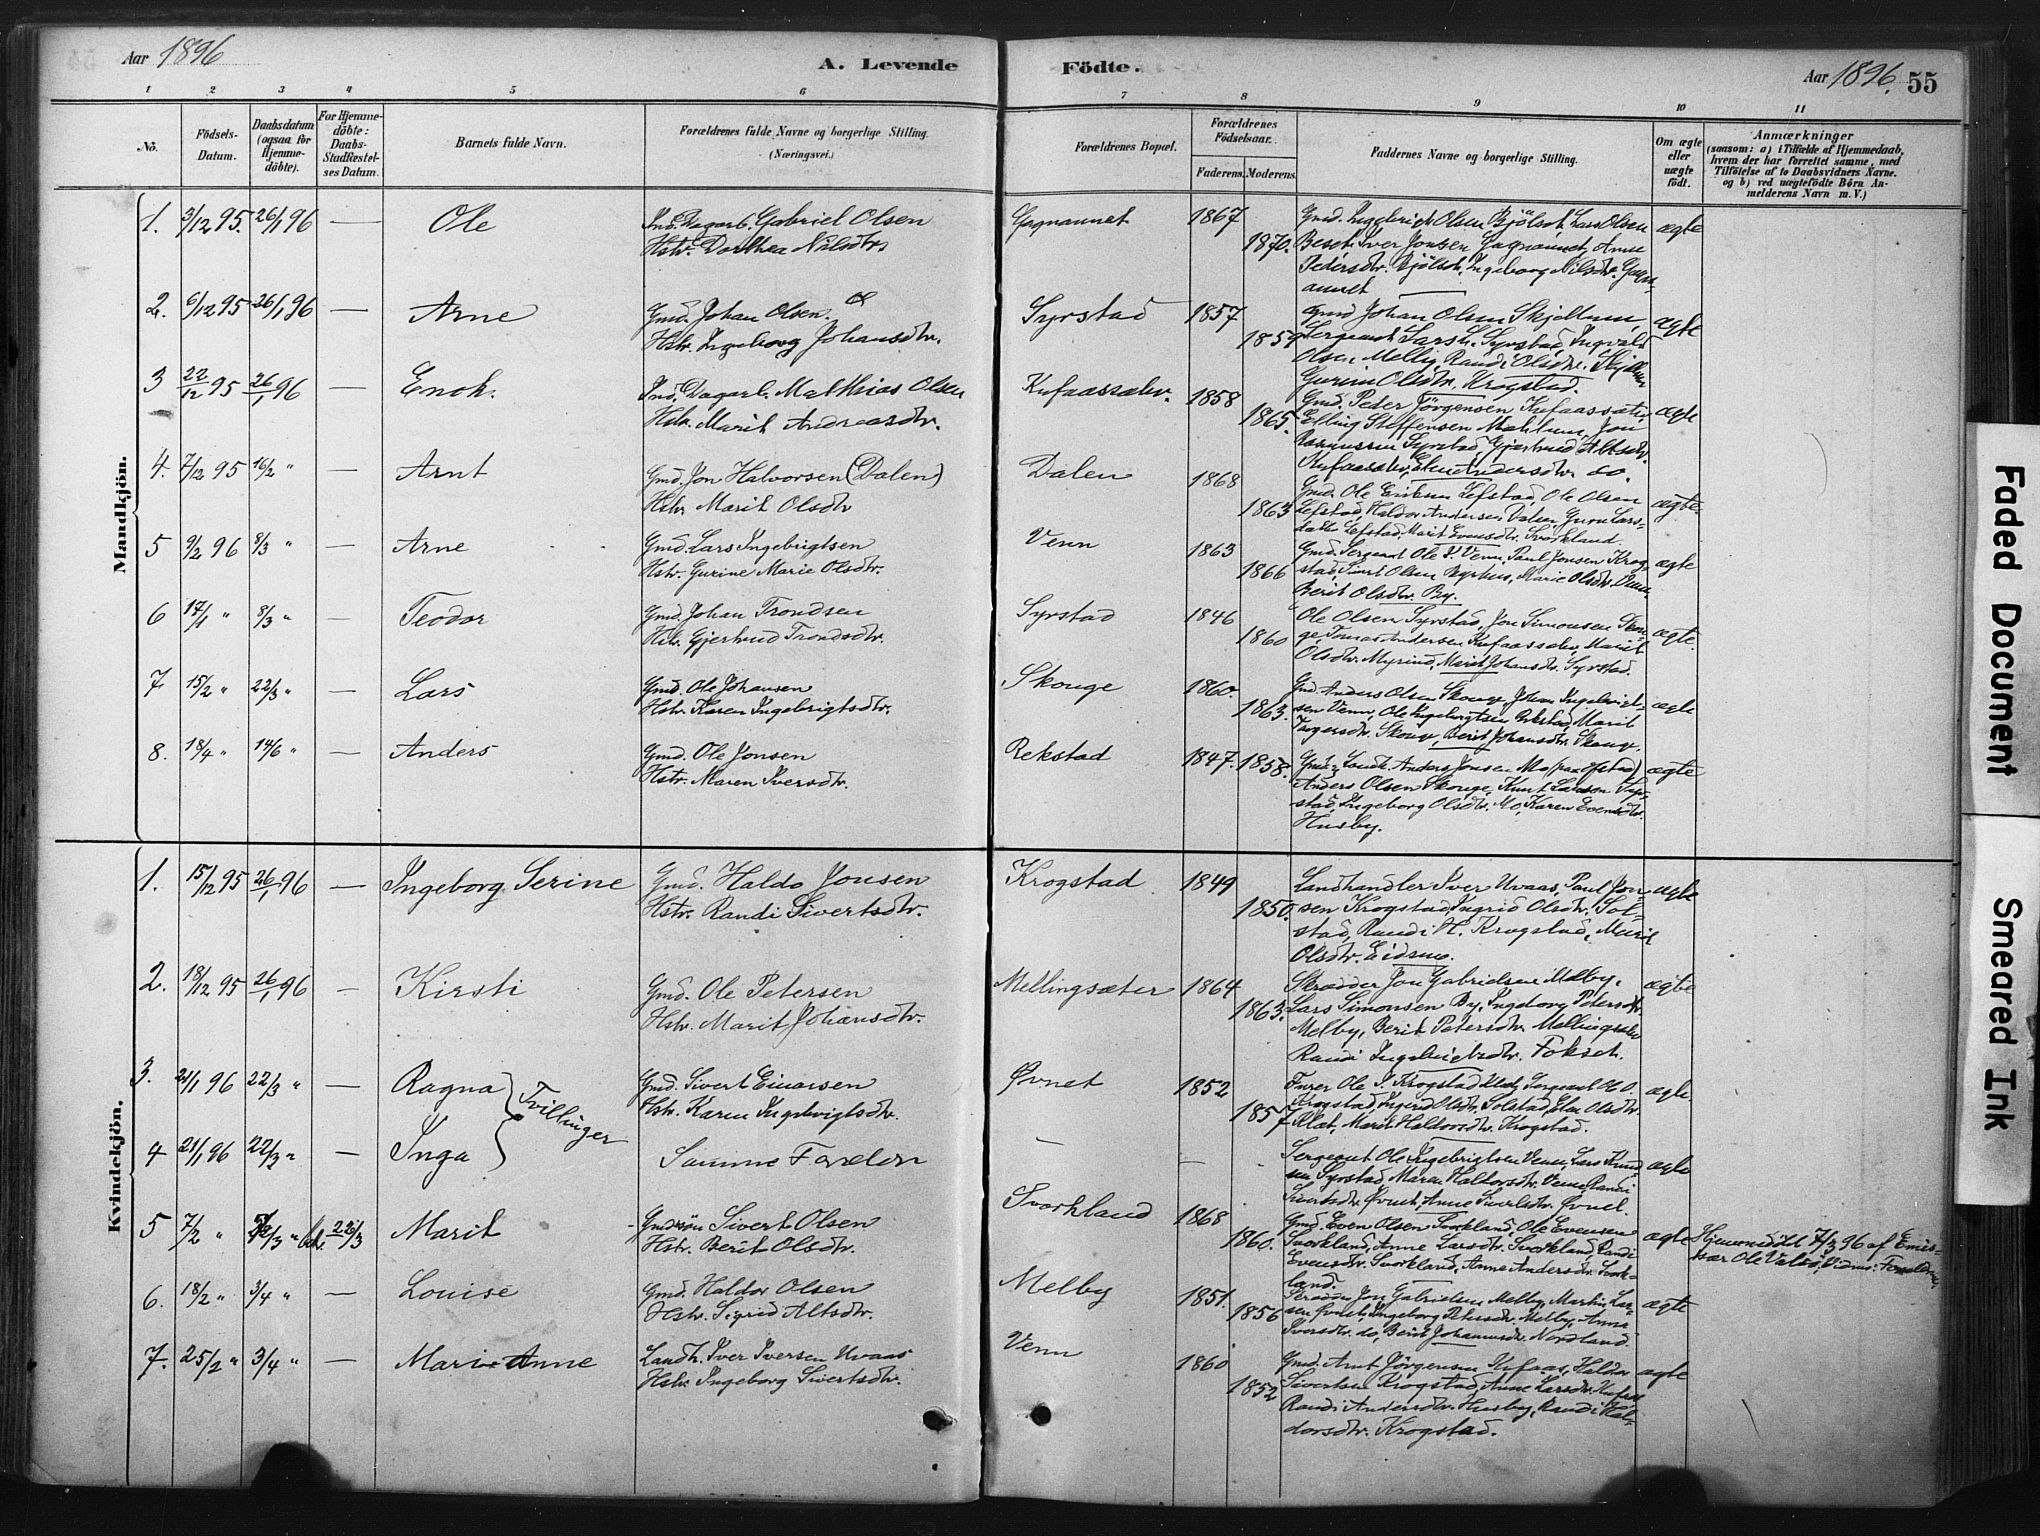 Aar 1896
A. Levende
Födte.
Aar 1896.
55
1 2 3 4 5 6 7 8 9 10 11
No.
Födsels-
Datum.
Daabsdatum
(ogsaa for
Hjemme-
döbte).
For Hjemme-
döbte:
Daabs-
Stadfæstel-
ses Datum.
Barnets fulde Navn.
Forældrenes fulde Navne og borgerlige Stilling.
(Næringsvei.)
Forældrenes Bopæl.
Forældrenes
Födselsaar.
Faderens.
Moderens.
Faddernes Navne og borgerlige Stilling.
Om ægte
eller
uægte
födt.
Anmærkninger
(saasom: a) i Tilfælde af Hjemmedaab,
hvem der har forrettet samme, med
Tilföielse af to Daabsvidners Navne.
og b) ved uægtefödte Börn An-
melderens Navn m. V.)
Mandkjön.
1. 3/12 95. 26/1 96 — Ole
Ind. Dagarb. Gabriel Olsen
Hstr. Dorthea Nilsdtr.
Gagnaunet 1867
1870.
Olsen Bjölset, Lars Olsen
Beset. Iver Jonsen Gagnaunet, Anne
Pedersdtr. Bjölset, Ingeborg Nilsdtr. Gagn-
aunet
ægte
2. 6/12 95 26/1 96 — Arne
Gmd. Johan Olsen
Hstr. Ingeborg Johansdtr.
Syrstad 1857
1859
Gmd Johan Olsen Skjellum,
Sergeant Lars L. Syrstad, Ingvald
Olsen Mellig, Randi Olsdtr. Skjellum
Gurine Olsdtr. Krogstad.
ægte
3 22/12 95 26/1 96 — Enok.
Ind. Dagarb. Matthias Olsen
Hstr. Marit Andreasdtr.
Kufaassæter. 1858
1865.
Gmd. Peder Jörgensen Kufaassæter,
Elling Steffensen Mælum, Jon
Rasmussen Syrstad, Gjertrud Altsdtr.
Kufaassæter, Andersdtr. do.
ægte
4. 7/12 95 16/2 " — Arnt
Gmd. Jon Halvorsen (Dalen)
Hstr. Marit Olsdtr
Dalen 1868
1863
Gmd. Ole Eriksen Lefstad, Ole Olsen
Lefstad, Haldor Andersen Dalen, Guru Lars-
datter Lefstad, Marit Evensdtr. Svorkland.
ægte.
5 9/2 96 8/3 " — Arne
Gmd. Lars Ingebrigtsen
Hstr. Gurine Marie Olsdtr.
Venn 1863
1866
Gmd. Sergeant Ole I. Venn, Paul Jonsen Krog-
stad, Sivert Olsen Byrhus, Marie Olsdtr.
Berit Olsdtr. By.
ægte
6 17/1 " 8/3 " — Teodor
Gmd. Johan Trondsen
Hstr. Gjertrud Trondsdtr.
Syrstad 1846
1860
Ole Olsen Syrstad, Jon Simonsen Skou-
ge, Tomas Andersen Kufaassæter, Marit
Olsdtr. Myrind, Marit Johansdtr. Syrstad.
ægte.
7 15/2 " 22/3 " — Lars
Gmd. Ole Johansen
Hstr. Karen Ingebrigtsdtr.
Skouge 1860.
1863.
Gmd. Anders Olsen Skouge, Johan Ingebrigt-
sen Venn, Ole Ingebrigtsen Rekstad, Marit
Skouge, Berit Johansdtr. Skouge.
ægte
8. 18/4 " 14/6 " — Anders
Gmd. Ole Jonsen
Hstr. Maren Iversdtr.
Rekstad 1847. 1858.
Gmd. & Landh. Anders Jonsen Mo
Anders Olsen Skouge, Knut Larsen Syr-
stad, Ingeborg Olsdtr. Mo, Karen Evensdtr.
Husby.
ægte
Kvindekjön.
1. 15/12 95 26/1 96 — Ingeborg Serine
Gmd. Haldo Jonsen
Hstr. Randi Sivertsdtr.
Krogstad 1849
1850.
Landhandler Iver Uvaas, Paul Jon-
sen Krogstad, Ingrid Olsdtr. Sol-
stad, Randi H. Krogstad, Marit
Olsdtr. Eidsmo.
ægte
2. 18/12 95 26/1 96 — Kirsti
Gmd. Ole Petersen
Hstr. Marit Johansdtr.
Mellingsæter 1864
1863.
Skrædder Jon Gabrielsen Melby,
Lars Simonsen By, Ingeborg Petersdtr.
Melby, Berit Petersdtr. Mellingsæter
Randi Ingebrigtsdtr. Fokset.
ægte
3. 21/1 96 22/3 " — Ragna
Tvillinger
Gmd. Sivert Einarsen
Hstr. Karen Ingebrigtsdtr.
Øvnet 1852
1857
Furer Ole P. Krogstad, Sergeant Ol O.
Krogstad, Ingerid Olsdtr. Solstad, Olsdtr.
Marit Haldorsdtr. Krogstad.
ægte.
4 21/1 96 22/3 " — Inga
Samme Forældre
—
—
Sergeant Ole Ingebrigtsen Venn, Lars Knud-
sen Syrstad, Maren Haldorsdtr. Venn, Randi
Sivertsdtr. Øvnet, Anne Sivertsdtr. Øvnet.
ægte
5 7/2 " 7/3 " 22/3 Marit
Gmdsön Sivert Olsen
Hstr. Berit Olsdtr.
Svorkland 1868
1860.
Gmd. Even Olsen Svorkland, Ole Evensen
Svorkland, Anne Larsdtr. Svorkland, Randi
Evensdtr. Svorkland, Anne Andersdtr. Svork-
land.
ægte
Hjemmedöbt 7/3 96 af Emis-
sær Ole Valsö, Vidner: Forældrene
6. 18/2 " 3/4 " — Louise
Gmd. Haldor Olsen
Hstr. Sigrid Altsdtr.
Melby 1851.
1856
Skrædder Jon Gabrielsen Melby, Martin Lar-
sen Øvnet, Ingeborg Petersdtr. Melby, Anne
Iversdtr. do, Berit Johannesdtr. Nordland.
ægte
7. 25/2 " 3/4 " — Marie Anne
Landh. Iver Iversen Uvaas
Hstr. Ingeborg Sivertsdtr.
Venn 1860
1852
Gmd. Arnt Jörgensen Kufaas, Haldor
Sivertsen Krogstad, Anne Larsdtr. Kufaas
Randi Andersdtr. Husby, Randi Hal-
dorsdtr. Krogstad.
ægte
Faded Document
Smeared Ink